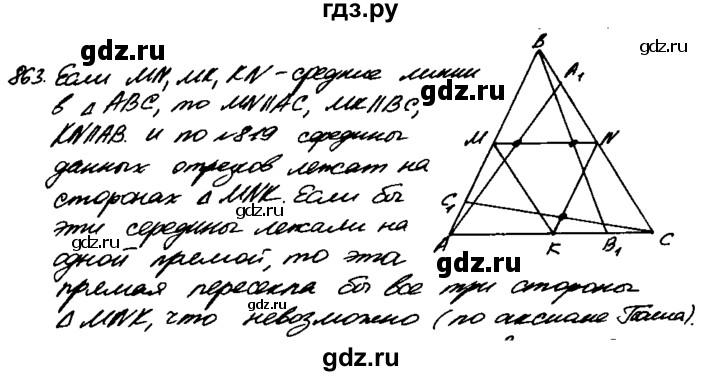 гдз.ру
863. Если MN, MK, KN – средние линии
в △ ABC, то MN∥AC, MK∥BC,
KN∥AB. и по №819 середины
данных отрезков лежат на
сторонах △ MNK. Если бы
эти середины лежали на
одной прямой, то эта
прямая пересекла бы все три стороны
△ MNK, что невозможно (по аксиоме Паша).
B
A₁
M
N
C₁
A
K
B₁
C
gdz.ru
gdz.ru
gdz.ru
gdz.ru
gdz.ru
gdz.ru
gdz.ru
gdz.ru
gdz.ru